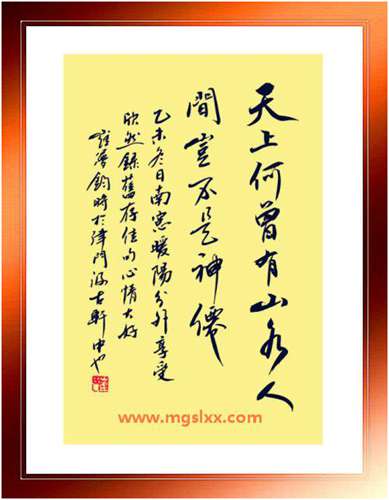 天上何曾有山水人
間豈不是神僊
乙未冬日南窓暖陽分外享受
欣然錄舊存佳句心情大好
鈞時於津門海古軒中也
www.mgslxx.com